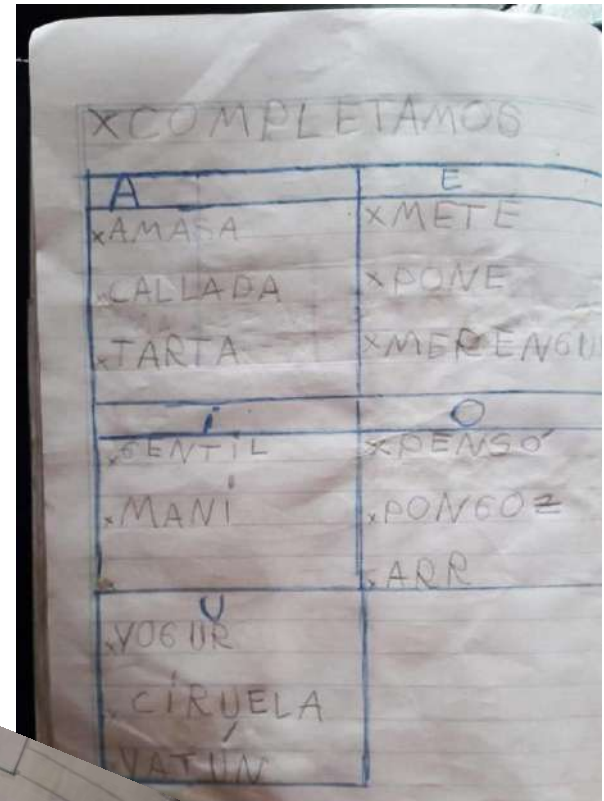 XCOMPLETAMOS
A E
xAMASA xMETE
xCALLADA xPONE
xTARTA xMERENGU
i O
xGENTIL xPENSÓ
xMANÍ xPONGO
xARR
U
xYOGUR
xCIRUELA
xYATÚN